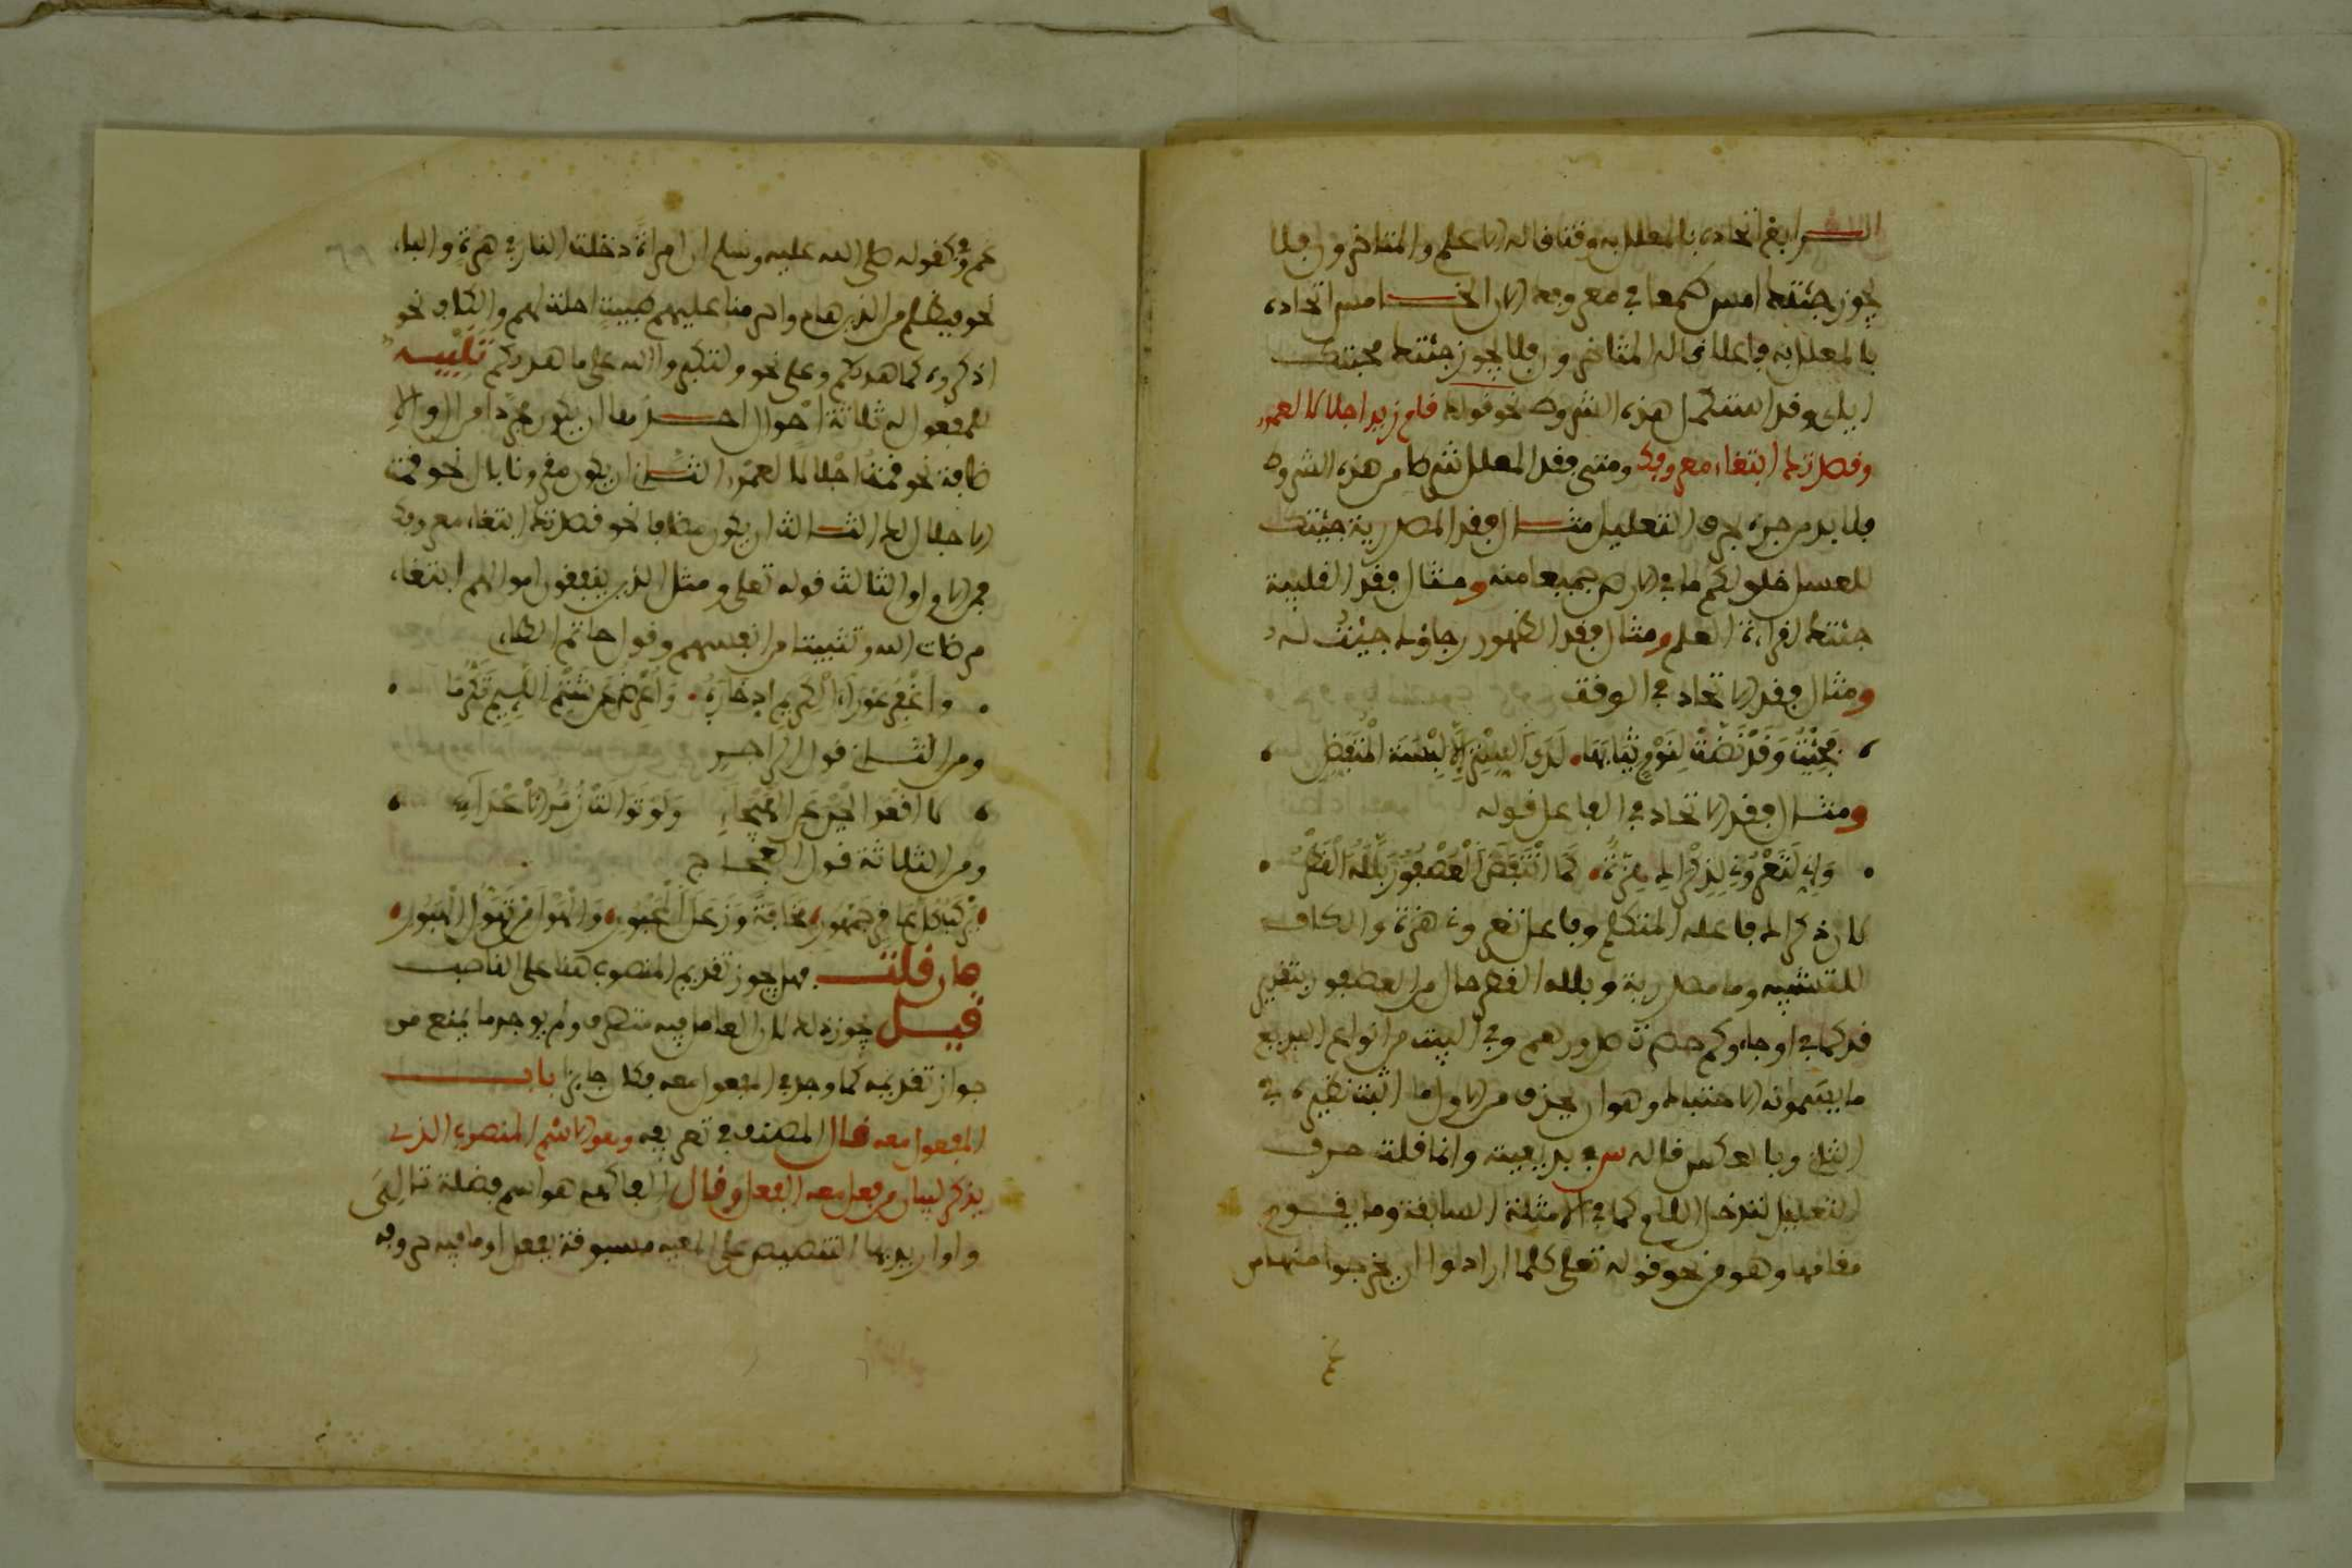 الرابع اتحاده بالمعلل به وقتا قاله الاعلم والمتاخرون فلا
يجوز جئتك امس طمعا في معروفك الان الخامس اتحاده
بالمعلل به فاعلا قاله المتاخرون فلا يجوز جئتك محبتك
اياي وقد استكمل هذه الشروط نحو قوله قام زيد اجلالا لعمرو
وقصدتك ابتغاء معروفك ومتى فقد المعلل شرطا من هذه الشروط
فلا بد من جره بحرف التعليل مثال فقد المصدرية جئتك
للعسل خلق لكم ما في الارض جميعا منه ومثال فقد القلبية
جئتك لقراءة العلم ومثال فقد الظهور رجاؤك جئت له
ومثال فقد الاتحاد في الوقت
فجئت وقد نضت لنوم ثيابها لدى الستر الا لبسة المتفضل
ومثال فقد الاتحاد في الفاعل قوله
واني لتعروني لذكراك هزة كما انتفض العصفور بلله القطر
لان ذكراك فاعله المتكلم وفاعل تعروني هزة والكاف
للتشبيه وما مصدرية وبلله القطر حال من العصفور بتقدير
قد كما في او جاوكم حصرت صدورهم وفي البيت من انواع البديع
ما يسمونه الاحتباك وهو ان يحذف من الاول ما اثبت نظيره في
الثاني وبالعكس قاله س في بديعيته وانما قلت حرف
التعليل لتدخل اللام كما في الامثلة السابقة وما يقوم
مقامها وهو من نحو قوله تعلى كلما ارادوا ان يخرجوا منها من
غم وفي كقوله صلى الله عليه وسلم ان امراة دخلت النار في هرة والباء
نحو فبظلم من الذين هادوا حرمنا عليهم طيبت احلت لهم والكاف نحو
اذكروه كما هديكم وعلى نحو ولتكبروا الله على ما هديكم تنبيه
للمفعول له ثلاثة احوال احدها ان يكون مجردا من ال والا
ضافة نحو قمت اجلالا لعمرو الثاني ان يكون مقرونا بال نحو قمت
الاجلال لك الثالث ان يكون مضافا نحو قصدتك ابتغاء معروفك
فمن الاول والثالث قوله تعلى ومثل الذين ينفقون اموالهم ابتغاء
مرضات الله وتثبيتا من انفسهم وقول حاتم الطاءي
واغفر عوراء الكريم ادخاره واعرض عن شتم اللئيم تكرما
ومن الثاني قول الراجز
لا اقعد الجبن عن الهيجاء ولو توالت زمر الاعداء
ومن الثلاثة قول العجاج
يركب كل عاقر جمهور مخافة وزعل المحبور والهول من تهول الهبور
فان قلت فهل يجوز تقديم المنصوب هنا على الناصب
قيل يجوز ذلك لان العامل فيه متصرف ولم يوجد ما يمنع من
جواز تقديمه كما وجد في المفعول معه فكان جايزا باب
المفعول معه قال المصنف في تعريفه وهو الاسم المنصوب الذي
يذكر لبيان من فعل معه الفعل وقال الفاكهي هو اسم فضلة تالي
واو اريد بها التنصيص على المعية مسبوقة بفعل او ما فيه حروفه